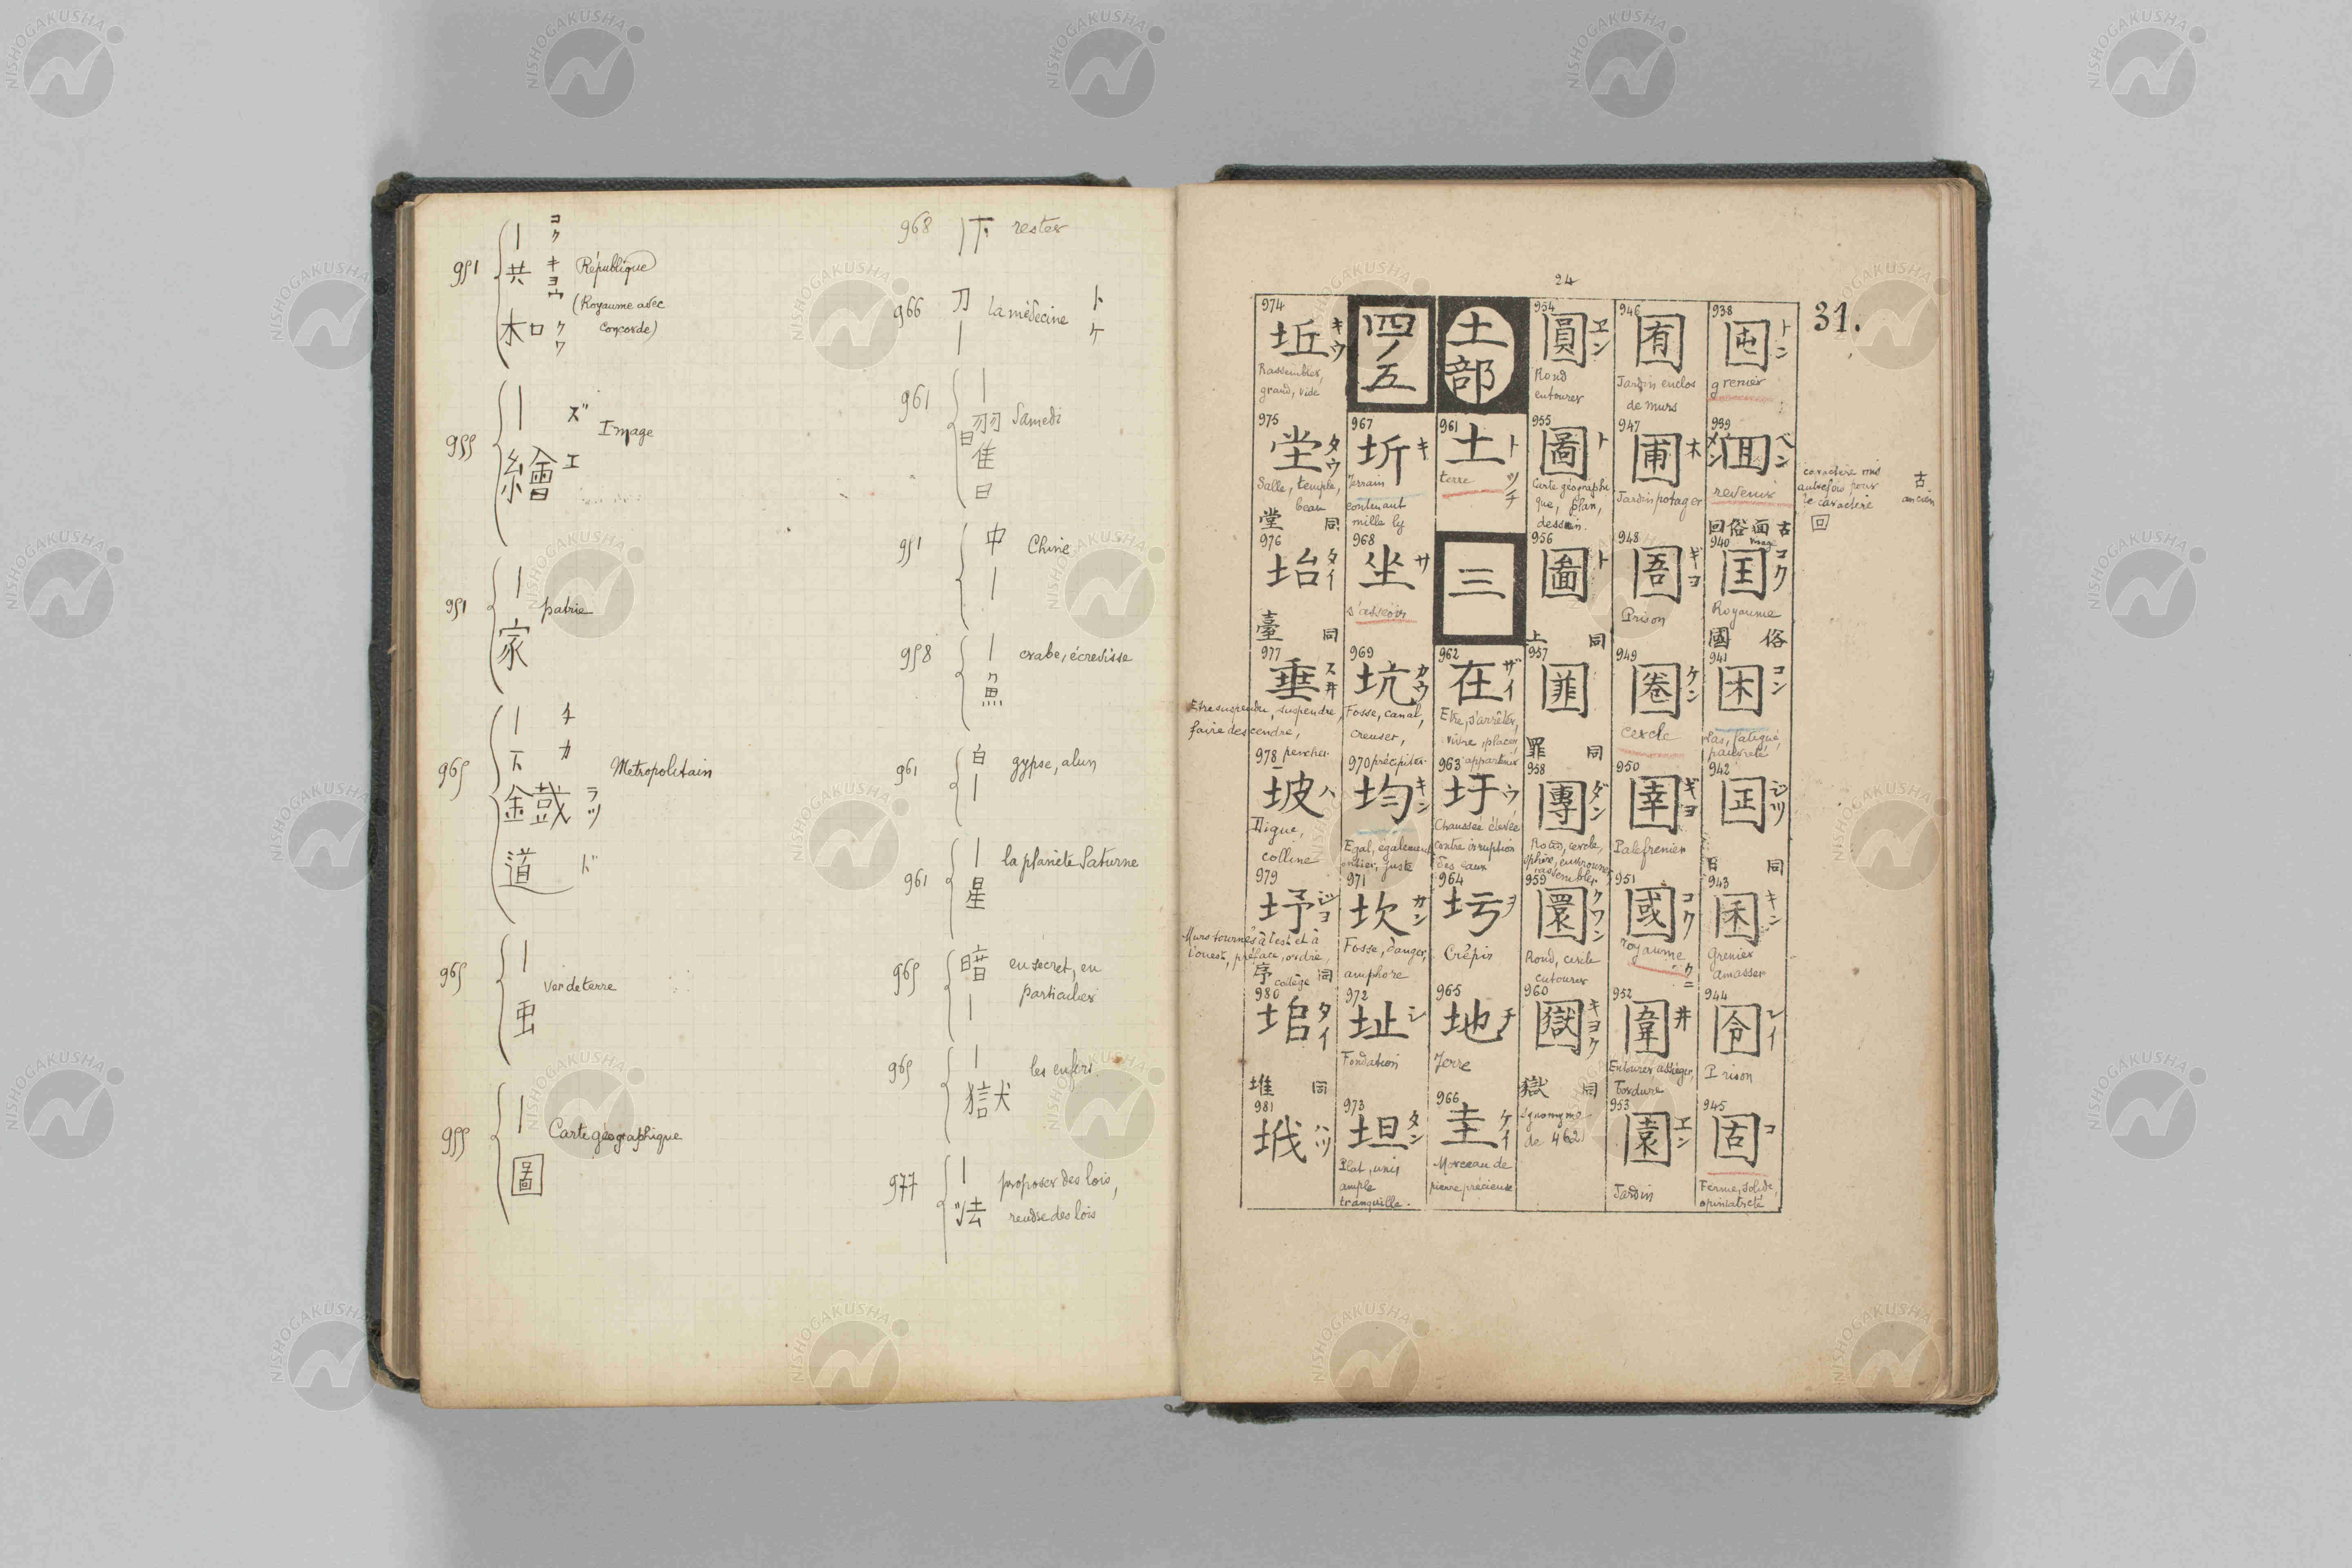 951
|
共
和
コク
キヨウ
クワ
République
(Royaume avec
Concorde)
955
|
繪
ズ
エ
Image
951
|
家
patrie
965
|
下
鐵
道
チ
カ
テツ
ド
Metropolitain
965
|
虫
Ver de terre
955
|
圖
Carte géographique
968
|
下
rester
966
刀
|
la médecine
ト
ケ
961
|
曜
日
Samedi
951
中
|
Chine
958
|
魚
crabe, écrevisse
961
白
|
gypse, alun
961
|
星
la planète Saturne
965
暗
|
en secret, en
particulier
965
|
獄
les enfers
977
|
法
proposer des lois,
rendre des lois
24
31.
938
囤
トン
grenier
999
ベン
revenir
回俗 古
caractère mis
autrefois pour
le caractère
回
古
ancien
940
囯
コク
Royaume
國 俗
941
困
コン
Las, fatigué,
pauvreté
942
ジツ
日 同
943
囷
キン
Grenier
amasser
944
囹
レイ
Prison
945
固
コ
Ferme, solide,
opiniatreté
946
囿
Jardin enclos
de murs
947
圃
ホ
Jardin potager
948
圄
ギヨ
Prison
949
圈
ケン
cercle
950
圉
ギヨ
Palefrenier
951
國
コク
royaume
クニ
952
圍
井
Entourer, assiéger,
Bordure
953
園
エン
Jardin
954
圓
ヱン
Rond
entourer
955
圖
ト
Carte géographi
que, plan,
dessin.
956
啚
ト
上 同
957
罪 同
958
團
ダン
Rond, cercle,
sphère, environner,
assembler
959
圜
クワン
Rond, cercle
entourer
960
キヨク
獄 同
Synonyme
de 462
土部
961
土
ト
ツチ
terre
三
962
在
ザイ
Etre, s'arrêter,
vivre, placer,
appartenir
963
圩
ウ
Chaussée élevée
contre irruption
des eaux
964
圬
ヲ
Crêpir
965
地
チ
Terre
966
圭
ケイ
Morceau de
pierre précieuse
四ノ五
967
圻
キ
Terrain
contenant
mille ly
968
坐
サ
s'asseoir
969
坑
カウ
Fosse, canal,
creuser,
précipiter
970
均
キン
Egal, également
entier, juste
971
坎
カン
Fosse, danger,
amphore
972
址
シ
Fondation
973
坦
タン
Plat, unis
ample
tranquille.
974
坵
キウ
Rassembler,
grand, vide
975
堂
タウ
Salle, temple,
beau
堂 同
976
坮
タイ
臺 同
977
垂
スヰ
Etre suspendu, suspendre,
faire descendre,
pencher
978
坡
ハ
Digue,
colline
979
垿
ジヨ
Murs tournés à l'est et à
l'ouest, préface, ordre,
序 collège 同
980
タイ
堆 同
981
ハツ